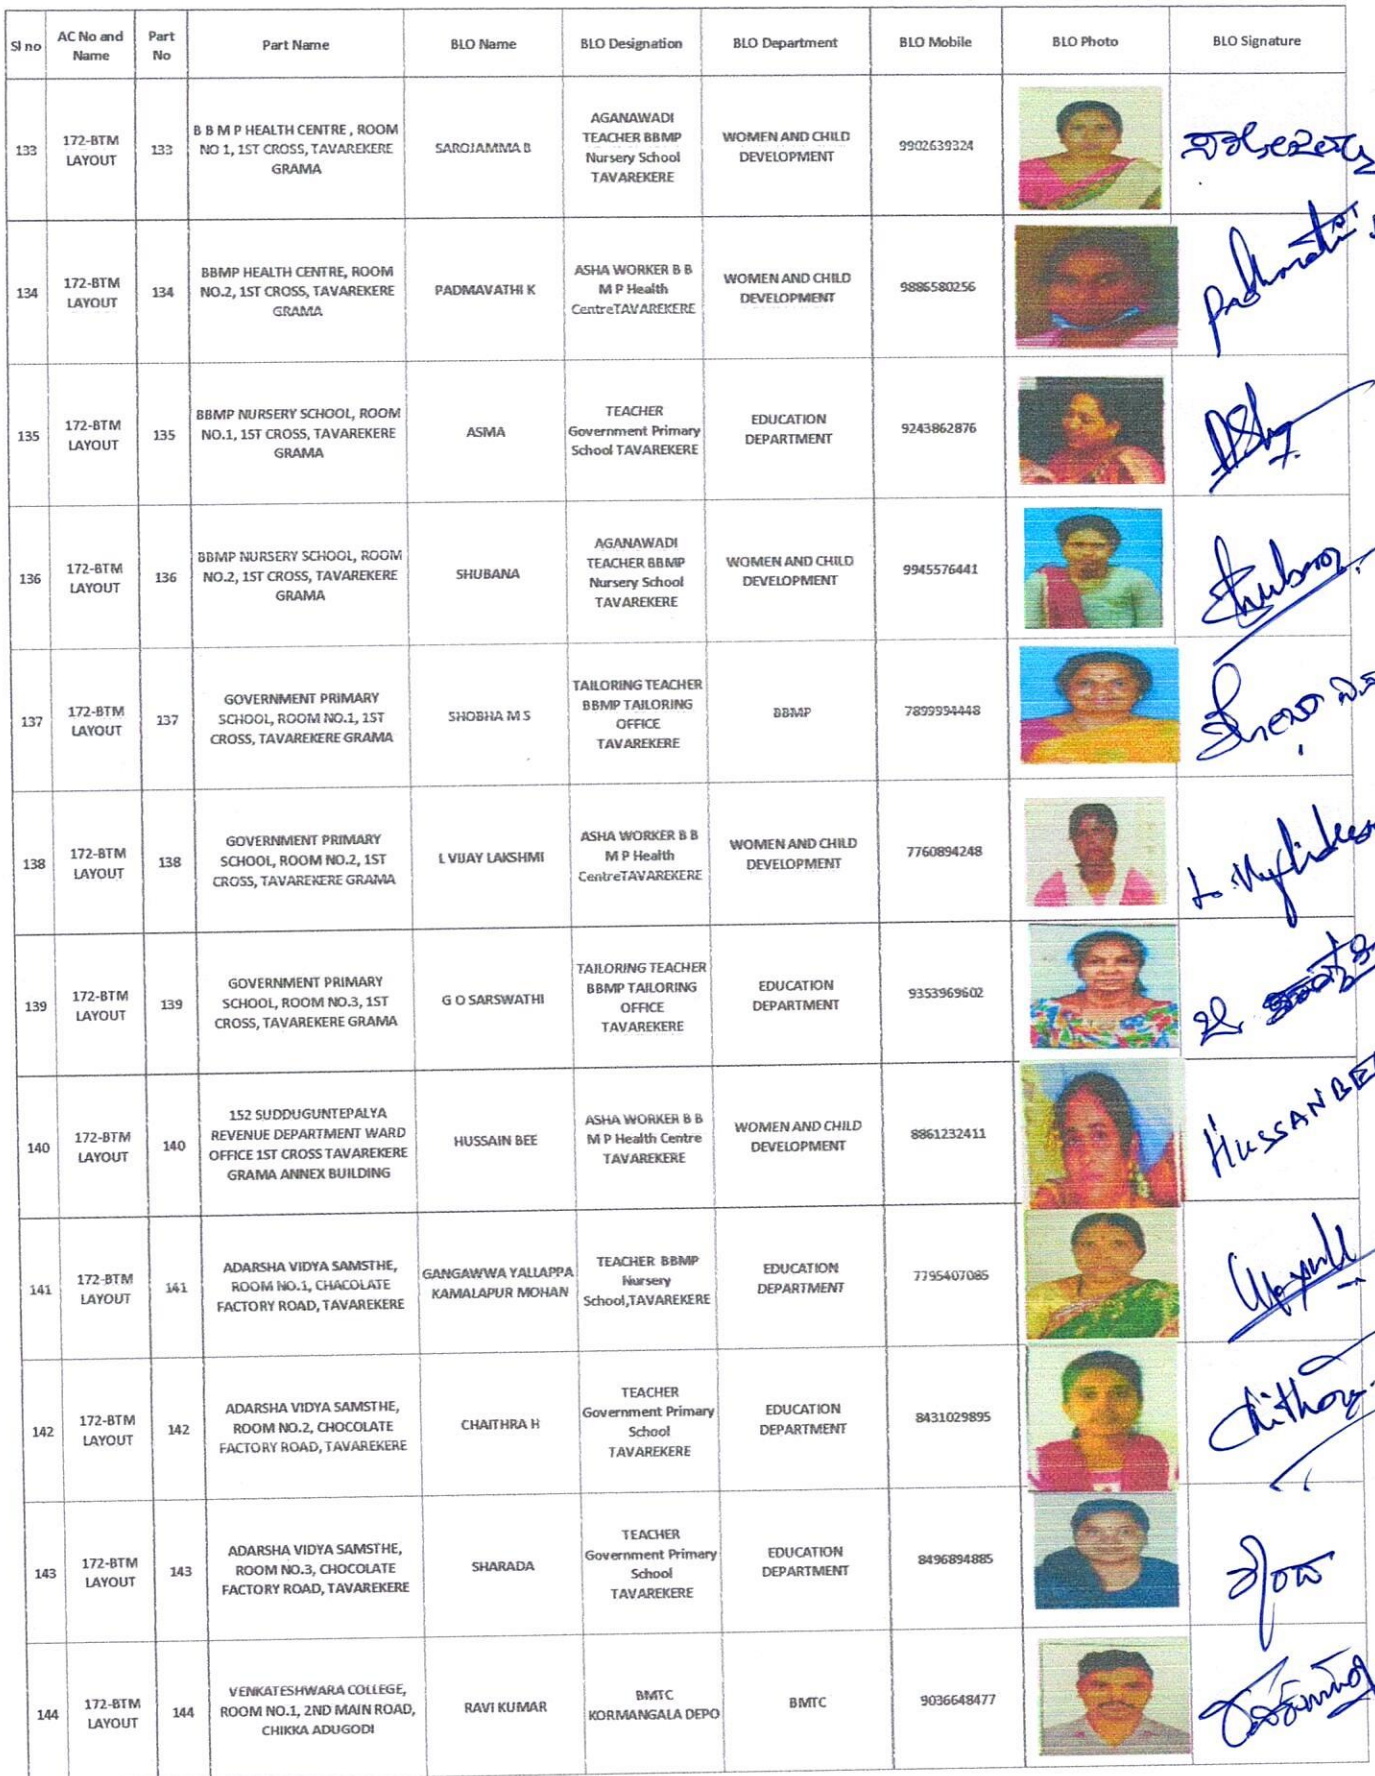 Sl no
AC No and
Name
Part
No
Part Name
BLO Name
BLO Designation
BLO Department
BLO Mobile
BLO Photo
BLO Signature
133
172-BTM
LAYOUT
133
B B M P HEALTH CENTRE , ROOM
NO 1, 1ST CROSS, TAVAREKERE
GRAMA
SAROJAMMA B
AGANAWADI
TEACHER BBMP
Nursery School
TAVAREKERE
WOMEN AND CHILD
DEVELOPMENT
9902639324
134
172-BTM
LAYOUT
134
BBMP HEALTH CENTRE, ROOM
NO.2, 1ST CROSS, TAVAREKERE
GRAMA
PADMAVATHI K
ASHA WORKER B B
M P Health
CentreTAVAREKERE
WOMEN AND CHILD
DEVELOPMENT
9886580256
135
172-BTM
LAYOUT
135
BBMP NURSERY SCHOOL, ROOM
NO.1, 1ST CROSS, TAVAREKERE
GRAMA
ASMA
TEACHER
Government Primary
School TAVAREKERE
EDUCATION
DEPARTMENT
9243862876
136
172-BTM
LAYOUT
136
BBMP NURSERY SCHOOL, ROOM
NO.2, 1ST CROSS, TAVAREKERE
GRAMA
SHUBANA
AGANAWADI
TEACHER BBMP
Nursery School
TAVAREKERE
WOMEN AND CHILD
DEVELOPMENT
9945576441
137
172-BTM
LAYOUT
137
GOVERNMENT PRIMARY
SCHOOL, ROOM NO.1, 1ST
CROSS, TAVAREKERE GRAMA
SHOBHA M S
TAILORING TEACHER
BBMP TAILORING
OFFICE
TAVAREKERE
BBMP
7899994448
138
172-BTM
LAYOUT
138
GOVERNMENT PRIMARY
SCHOOL, ROOM NO.2, 1ST
CROSS, TAVAREKERE GRAMA
L VIJAY LAKSHMI
ASHA WORKER B B
M P Health
CentreTAVAREKERE
WOMEN AND CHILD
DEVELOPMENT
7760894248
139
172-BTM
LAYOUT
139
GOVERNMENT PRIMARY
SCHOOL, ROOM NO.3, 1ST
CROSS, TAVAREKERE GRAMA
G O SARSWATHI
TAILORING TEACHER
BBMP TAILORING
OFFICE
TAVAREKERE
EDUCATION
DEPARTMENT
9353969602
140
172-BTM
LAYOUT
140
152 SUDDUGUNTEPALYA
REVENUE DEPARTMENT WARD
OFFICE 1ST CROSS TAVAREKERE
GRAMA ANNEX BUILDING
HUSSAIN BEE
ASHA WORKER B B
M P Health Centre
TAVAREKERE
WOMEN AND CHILD
DEVELOPMENT
8861232411
HUSSANBEE
141
172-BTM
LAYOUT
141
ADARSHA VIDYA SAMSTHE,
ROOM NO.1, CHACOLATE
FACTORY ROAD, TAVAREKERE
GANGAWWA YALLAPPA
KAMALAPUR MOHAN
TEACHER BBMP
Nursery
School,TAVAREKERE
EDUCATION
DEPARTMENT
7795407085
142
172-BTM
LAYOUT
142
ADARSHA VIDYA SAMSTHE,
ROOM NO.2, CHOCOLATE
FACTORY ROAD, TAVAREKERE
CHAITHRA H
TEACHER
Government Primary
School
TAVAREKERE
EDUCATION
DEPARTMENT
8431029895
143
172-BTM
LAYOUT
143
ADARSHA VIDYA SAMSTHE,
ROOM NO.3, CHOCOLATE
FACTORY ROAD, TAVAREKERE
SHARADA
TEACHER
Government Primary
School
TAVAREKERE
EDUCATION
DEPARTMENT
8496894885
144
172-BTM
LAYOUT
144
VENKATESHWARA COLLEGE,
ROOM NO.1, 2ND MAIN ROAD,
CHIKKA ADUGODI
RAVI KUMAR
BMTC
KORMANGALA DEPO
BMTC
9036648477